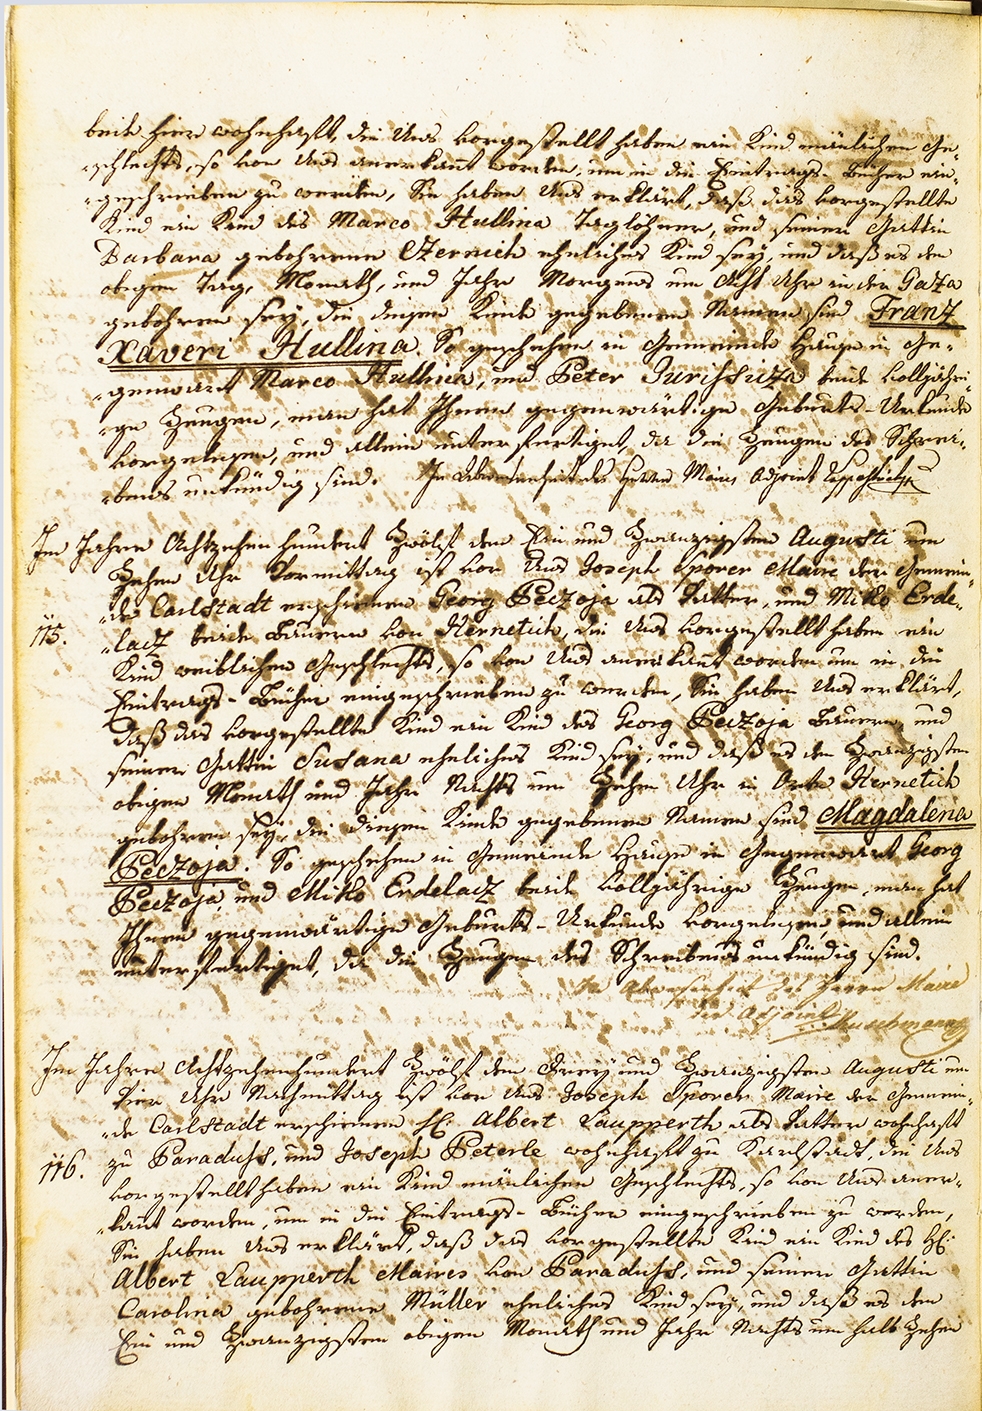 beide hier wohnhaft, die Uns vorgestellt haben ein Kind mänlichen Ge-
-schlechts, so von Uns anerkant worden, um in die Eintrags-Bücher ein-
-geschrieben zu werden, Sie haben Uns erklärt, daß das vorgestellte
Kind ein Kind des Marco Hullina Taglöhner, und seiner Gattin
Barbara gebohrene Czernich eheliches Kind sey, und daß es den
obigen Tag, Monath, und Jahr Morgens um Acht Uhr in der Gaza
gebohren sey, die diesen Kinde gegebenen Namen sind Frantz
Xaveri Hullina. So geschehen in Gemeinde Hause in Ge-
-genwart Marco Hullina, und Peter Jurissicza beide volljähri-
-ge Zeugen, man hat Ihnen gegenwärtige Geburts-Urkunde
vorgelesen, und allein unterfertiget, da die Zeugen des Schrei-
-bens unkündig sind. In Abwesenheit des Herrn Maires Adjoint
Im Jahre Achtzehen hundert Zwölf den Ein und Zwanzigsten Augusti um
Zehen Uhr Vormittag ist vor Uns Joseph Sporer Maire der Gemein-
-de Carlstadt erschienen Georg Peczoja als Vatter, und Miko Erde-
115. -lacz beide Bauern von Hernetich, die Uns vorgestellt haben ein
Kind weiblichen Geschlechts, so von Uns anerkant worden um in die
Eintrags-Bücher eingeschrieben zu werden, Sie haben Uns erklärt,
daß das vorgestellte Kind ein Kind des Georg Peczoja Bauern, und
seiner Gattin Susana eheliches Kind sey, und daß es den Zwanzigsten
obigen Monath und Jahr Nachts um Zehen Uhr in Orte Hernetich
gebohren sey, die diesen Kinde gegebenen Namen sind Magdalena
Peczoja. So geschehen in Gemeinde Hause in Gegenwart Georg
Peczoja, und Miko Erdelacz beide volljährige Zeugen, man hat
Ihnen gegenwärtige Geburts-Urkunde vorgelesen und allein
unterfertiget, da die Zeugen des Schreibens unkündig sind.
In Abwesenheit des Herrn Maire
der Adjoint Kuschmann
Im Jahre Achtzehenhundert Zwölf den Drey und Zwanzigsten Augusti um
Vier Uhr Nachmittag ist vor Uns Joseph Sporer Maire der Gemein-
-de Carlstadt erschienen H: Albert Laupperth als Vatter wohnhaft
116. zu Paraduss, und Joseph Peterle wohnhaft zu Karlstadt, die Uns
vorgestellt haben ein Kind mänlichen Geschlechts, so von Uns aner-
-kant worden, um in die Eintrags-Bücher eingeschrieben zu werden,
Sie haben Uns erklärt, daß das vorgestellte Kind ein Kind des H:
Albert Laupperth Maires von Paraduss, und seiner Gattin
Carolina gebohrene Müller eheliches Kind sey, und daß es den
Ein und Zwanzigsten obigen Monath und Jahr Nachts um halb Zehen